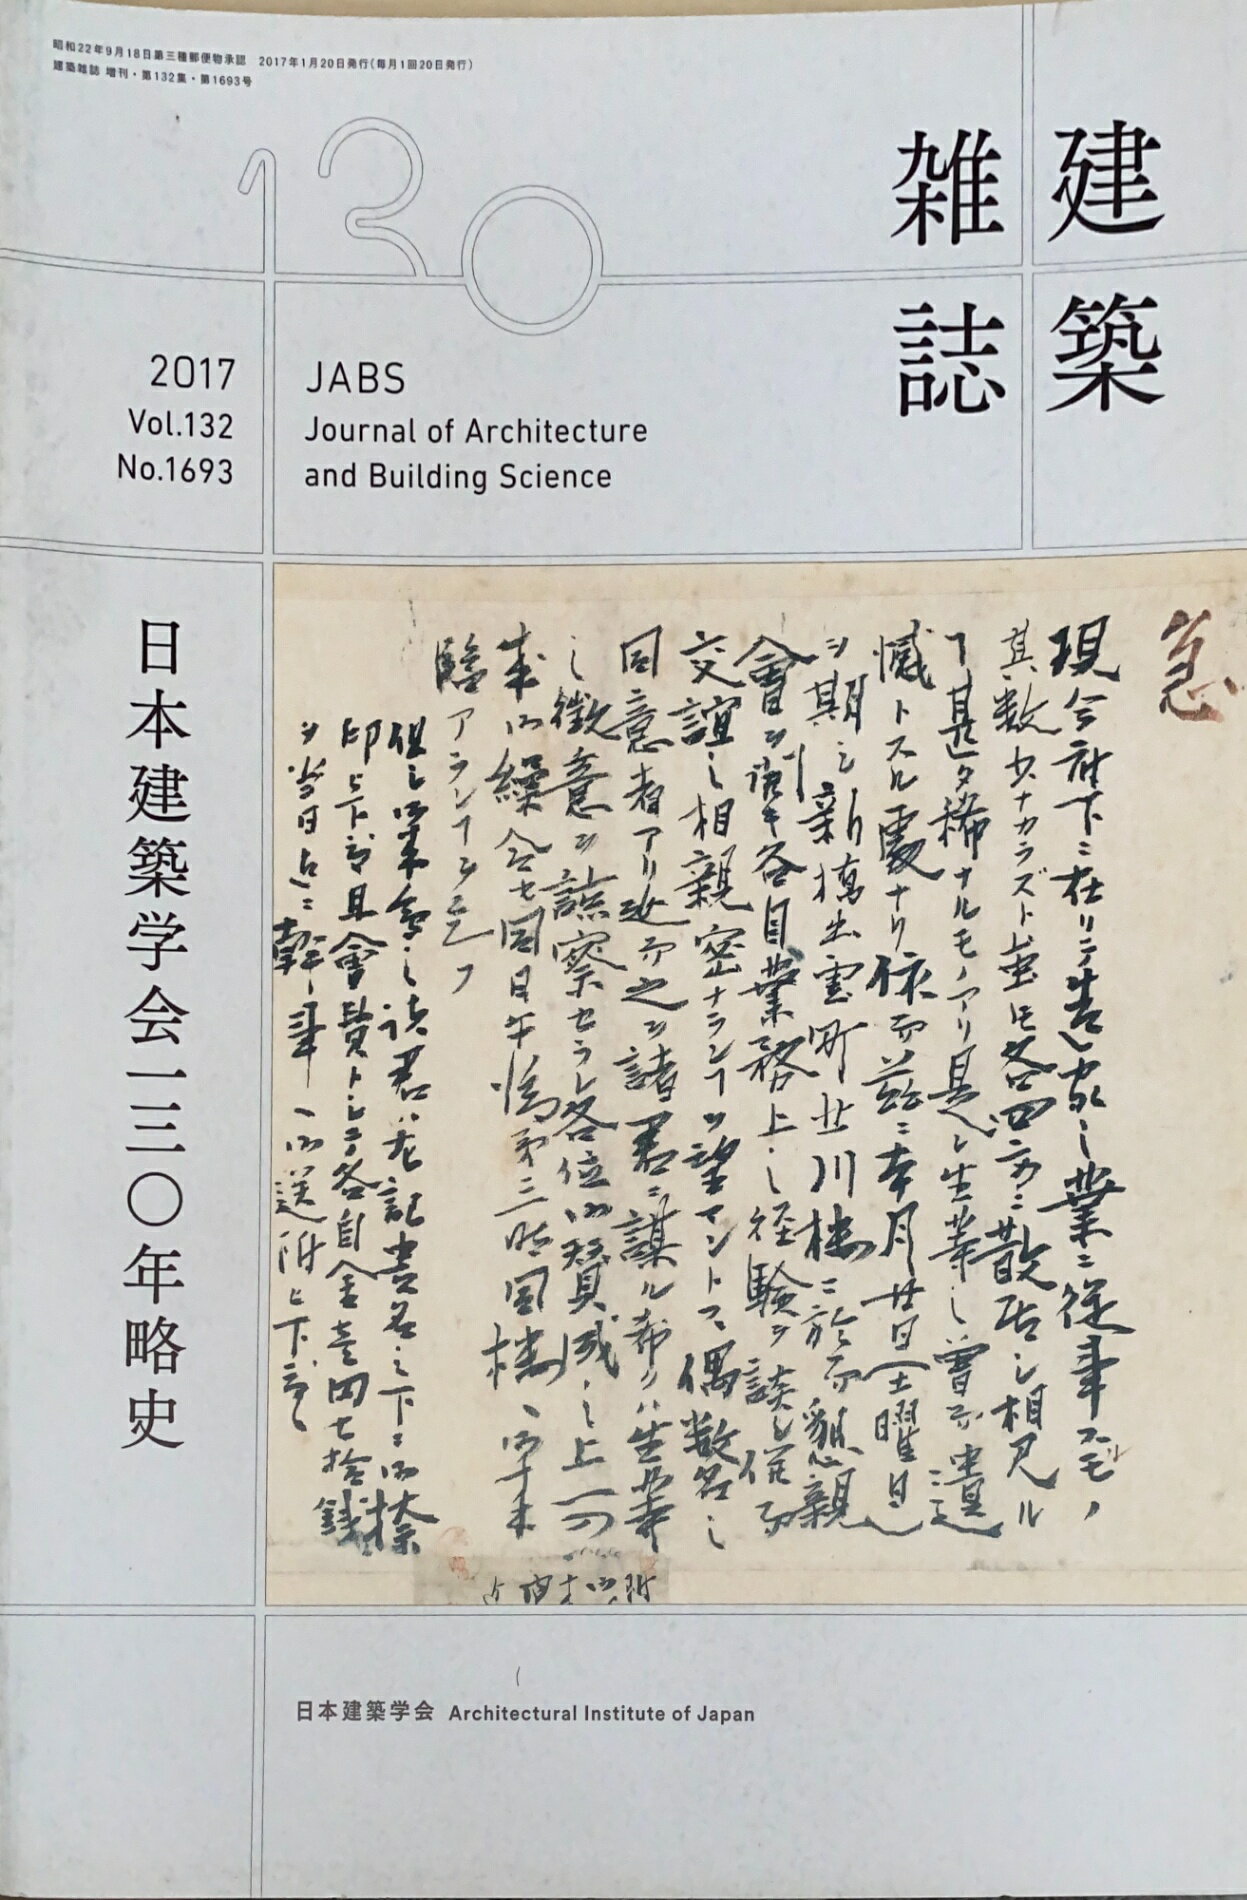 昭和22年9月18日第三種郵便物承認　2017年1月20日発行(毎月1回20日発行)
建築雑誌 増刊・第132集・第1693号
130
建築
雑誌
2017
Vol.132
No.1693
JABS
Journal of Architecture
and Building Science
日本建築学会一三〇年略史
急
現今府下ニ在リテ造家ノ業ニ従事スルモノ
其数少ナカラズト雖モ各四方ニ散居シ相見ル
甚タ稀ナルモノアリ是レ生等ノ曽而遺
憾トスル処ナリ依而茲ニ本月廿日(土曜日)
ヲ期シ新橋出雲町廿川楼ニ於而懇親
会ヲ開キ各自業務上ノ経験ヲ談シ併而
交誼ノ相親密ナラン ヲ望マントス 偶数名ノ
同意者アリ 而之ヲ諸君ニ謀ル希クハ生等
ノ微意ヲ諒察セラレ各位御賛成ノ上
御繰合セ同日午後第三時同楼へ御
臨アラン
但シ御来会ノ諸君ハ左記書名ノ下ニ御捺
印 下部且会費トシテ各自金壱円七拾銭
ヲ当日 ニ幹事へ御送附 下
日本建築学会 Architectural Institute of Japan